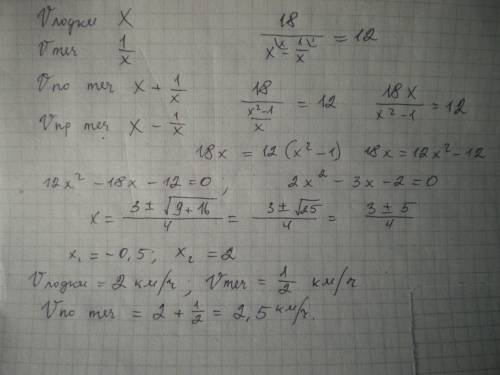 Vлодки X        18 / (x^{\x} - 1/x^{\1}) = 12
Vтеч 1/x
Vпо теч X + 1/x        18 / ((x²-1)/x) = 12        18x / (x²-1) = 12
Vпр теч X - 1/x
18x = 12(x²-1)   18x = 12x²-12
12x² - 18x - 12 = 0 ;        2x² - 3x - 2 = 0
x = (3 ± √(9+16)) / 4 = (3 ± √25) / 4 = (3 ± 5) / 4
x₁ = -0,5 ;   x₂ = 2
Vлодки = 2 км/ч ; Vтеч = 1/2 км/ч
Vпо теч = 2 + 1/2 = 2,5 км/ч.